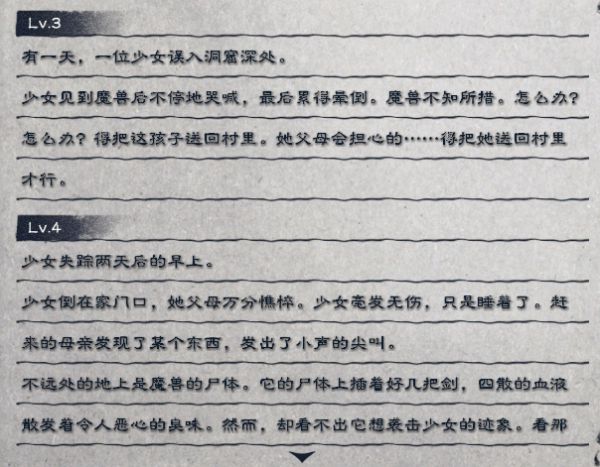 Lv.3
有一天，一位少女误入洞窟深处。
少女见到魔兽后不停地哭喊，最后累得晕倒。魔兽不知所措。怎么办？
怎么办？得把这孩子送回村里。她父母会担心的……得把她送回村里
才行。
Lv.4
少女失踪两天后的早上。
少女倒在家门口，她父母万分憔悴。少女毫发无伤，只是睡着了。赶
来的母亲发现了某个东西，发出了小声的尖叫。
不远处的地上是魔兽的尸体。它的尸体上插着好几把剑，四散的血液
散发着令人恶心的臭味。然而，却看不出它想袭击少女的迹象。看那